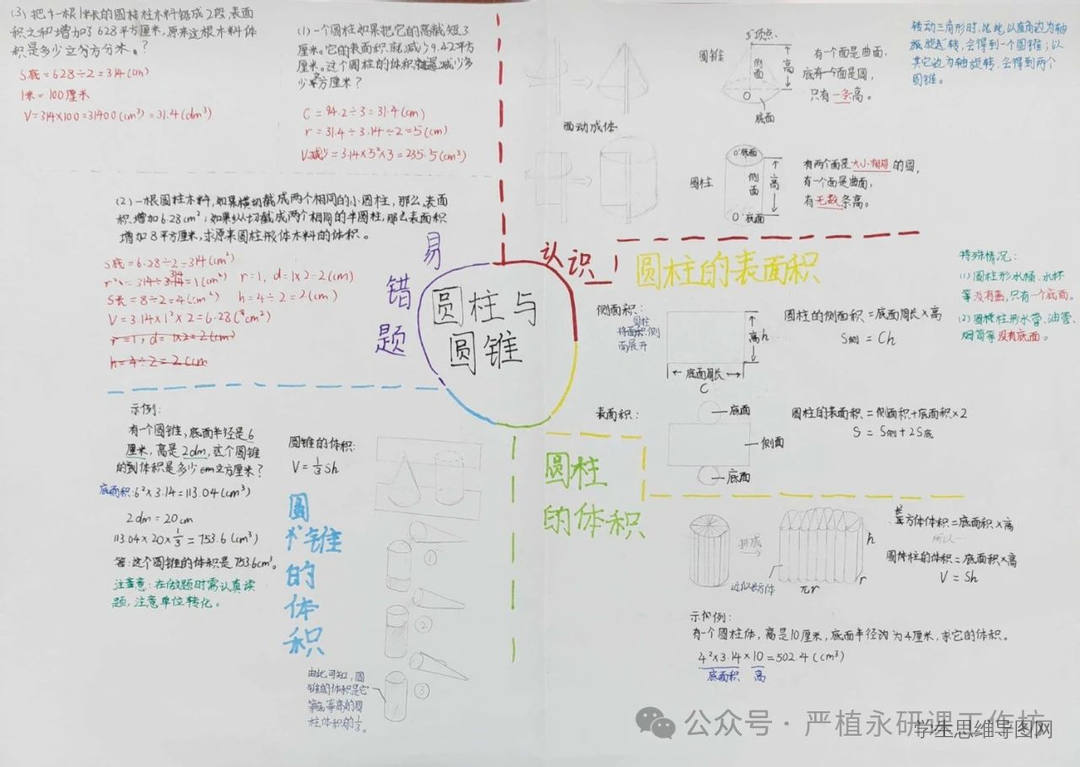 圆柱与
圆锥
认识
转动三角形时,
旋转,会得到一个圆锥;以
其它边为轴旋转,会得到两个
圆锥。
面动成体
圆锥
顶点
侧面
高
O
底面
有一个面是曲面,
底有一个面是圆,
只有一条高。
圆柱
O 底面
侧面
高
O 底面
有两个面是大小相等的圆,
有一个面是曲面,
有无数条高。
圆柱的表面积
侧面积:
圆柱
侧
面展开
高h
底面周长
C
圆柱的侧面积=底面周长×高
S侧=Ch
特殊情况:
(1)圆柱形水桶、水杯
等没有盖,只有一个底面。
(2)圆柱形水管、油管、
烟筒等没有底面。
表面积:
底面
侧面
底面
圆柱的表面积=侧面积+底面积×2
S=S侧+2S底
圆柱
的体积
拼成
近似长方体
πr
r
h
长方体体积=底面积×高
所以
圆柱的体积=底面积×高
V=Sh
示例:
有一个圆柱体,高是10厘米,底面半径为4厘米,求它的体积。
4²×3.14×10=502.4(cm³)
底面积 高
圆锥
的体积
圆锥的体积:
V=⅓Sh
①
②
③
由此可知,圆
锥的体积是它
等底等高的圆
柱体积的⅓。
示例:
有一个圆锥,底面半径是6
厘米,高是2dm,这个圆锥
的体积是多少立方厘米?
底面积:6²×3.14=113.04(cm²)
2dm=20cm
113.04×20×⅓=753.6(cm³)
答:这个圆锥的体积是753.6cm³。
注意:在做题时需认真读
题,注意单位转化。
易错题
(1)一个圆柱如果把它的高截短3
厘米,它的表面积就减少94.2平方
厘米。这个圆柱的体积就减少多
少立方厘米?
C=94.2÷3=31.4(cm)
r=31.4÷3.14÷2=5(cm)
V减少=3.14×5²×3=235.5(cm³)
(2)一根圆柱木料,如果横切截成两个相同的小圆柱,那么表面
积增加6.28cm²;如果纵切截成两个相同的半圆柱,那么表面积
增加8平方厘米,求原来圆柱形体木料的体积。
S底=6.28÷2=3.14(cm²)
r²=3.14÷3.14=1(cm²) r=1, d=1×2=2(cm)
S长=8÷2=4(cm²) h=4÷2=2(cm)
V=3.14×1²×2=6.28(cm³)
r=1, d=1×2=2(cm)
h=4÷2=2(cm
(3)把一根1米长的圆柱木料锯成2段,表面
积之和增加了628平方厘米,原来这根木料体
积是多少立方分米。?
S底=628÷2=314(cm)
1米=100厘米
V=314×100=31400(cm³)=31.4(dm³)
公众号·严植永研课工作坊
学生思维导图网